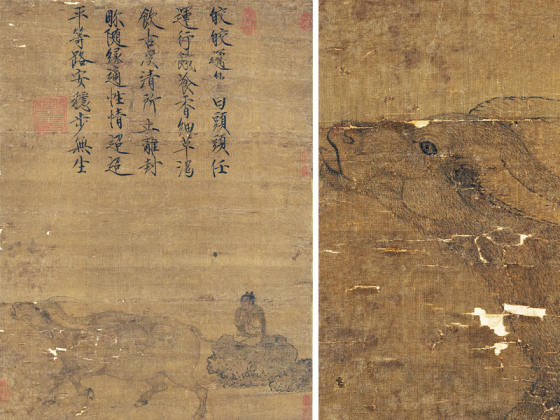 皎皎白頭頭任
運行飢飡香細草渴
飲古溪清所止離封
畛隨緣適性情迢迢
平等路安穩步無生